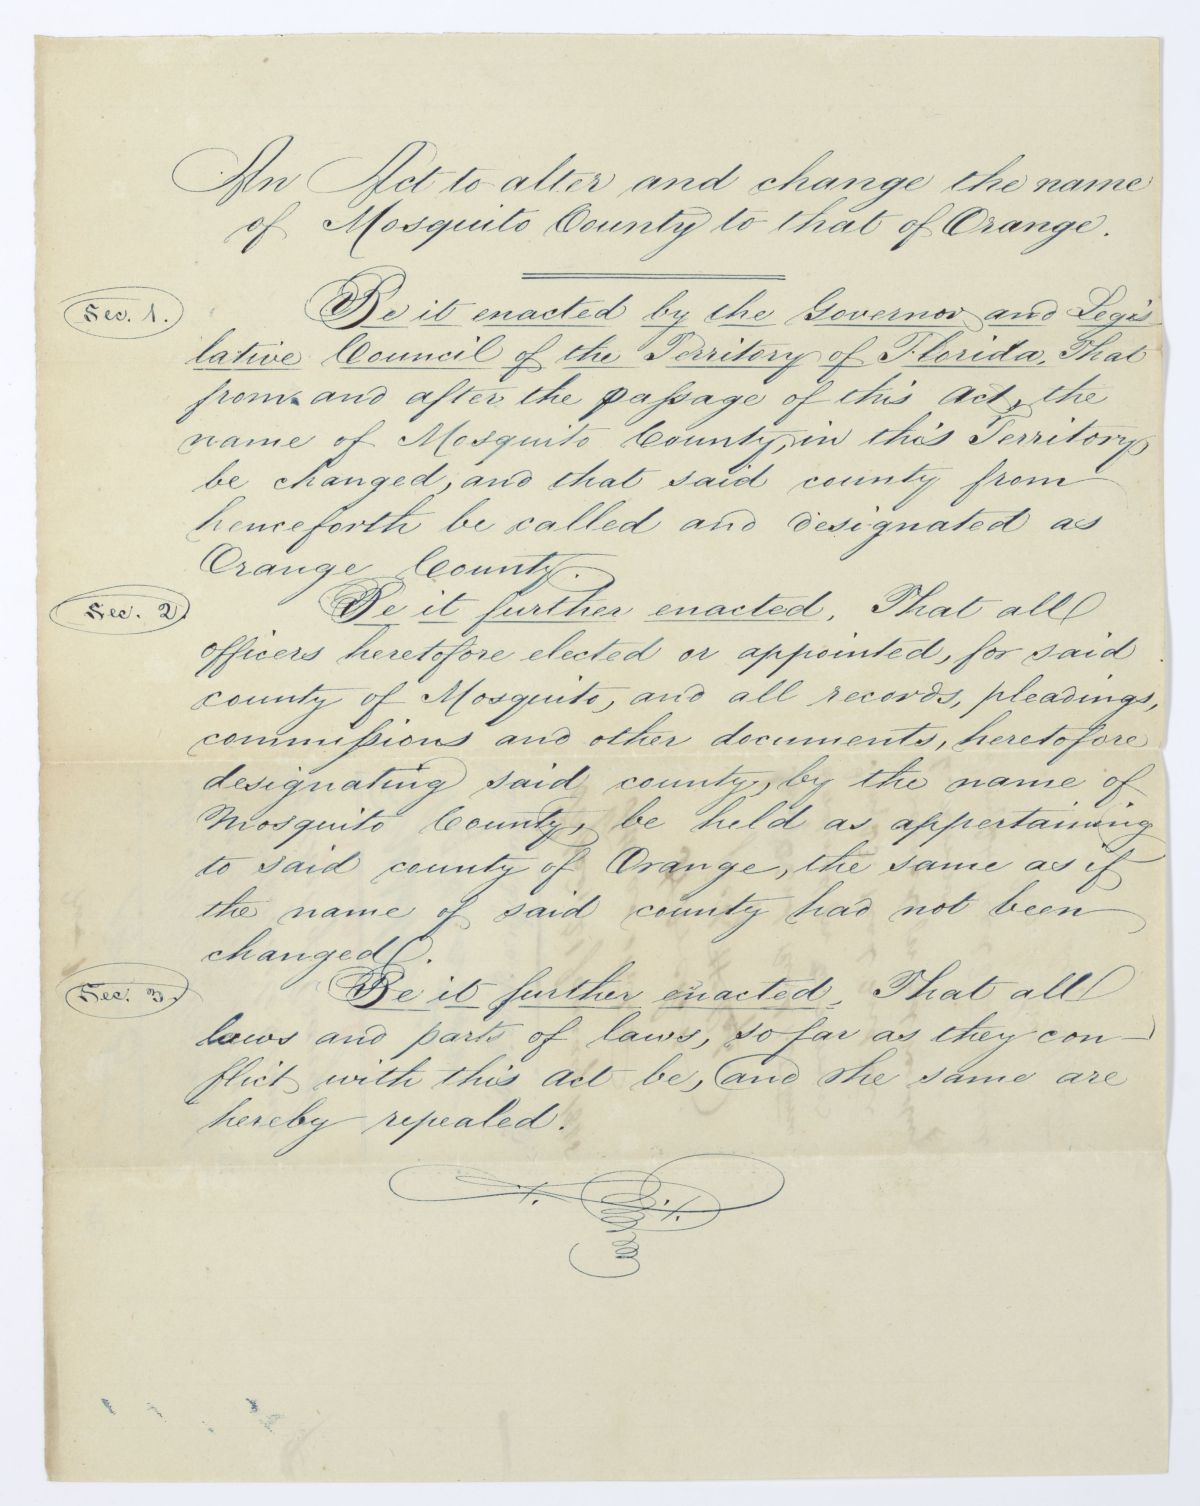 An Act to alter and change the name
of Mosquito County to that of Orange.
Sec. 1.
Be it enacted by the Governor and Legis
lative Council of the Territory of Florida, That
from and after the passage of this Act, the
name of Mosquito County, in this Territory,
be changed, and that said county from
henceforth be called and designated as
Orange County.
Sec. 2.
Be it further enacted, That all
officers heretofore elected or appointed, for said
county of Mosquito, and all records, pleadings,
commissions and other documents, heretofore
designating said county, by the name of
Mosquito County, be held as appertaining
to said county of Orange, the same as if
the name of said county had not been
changed.
Sec. 3.
Be it further enacted, That all
laws and parts of laws, so far as they con-
flict with this Act be, and the same are
hereby repealed.